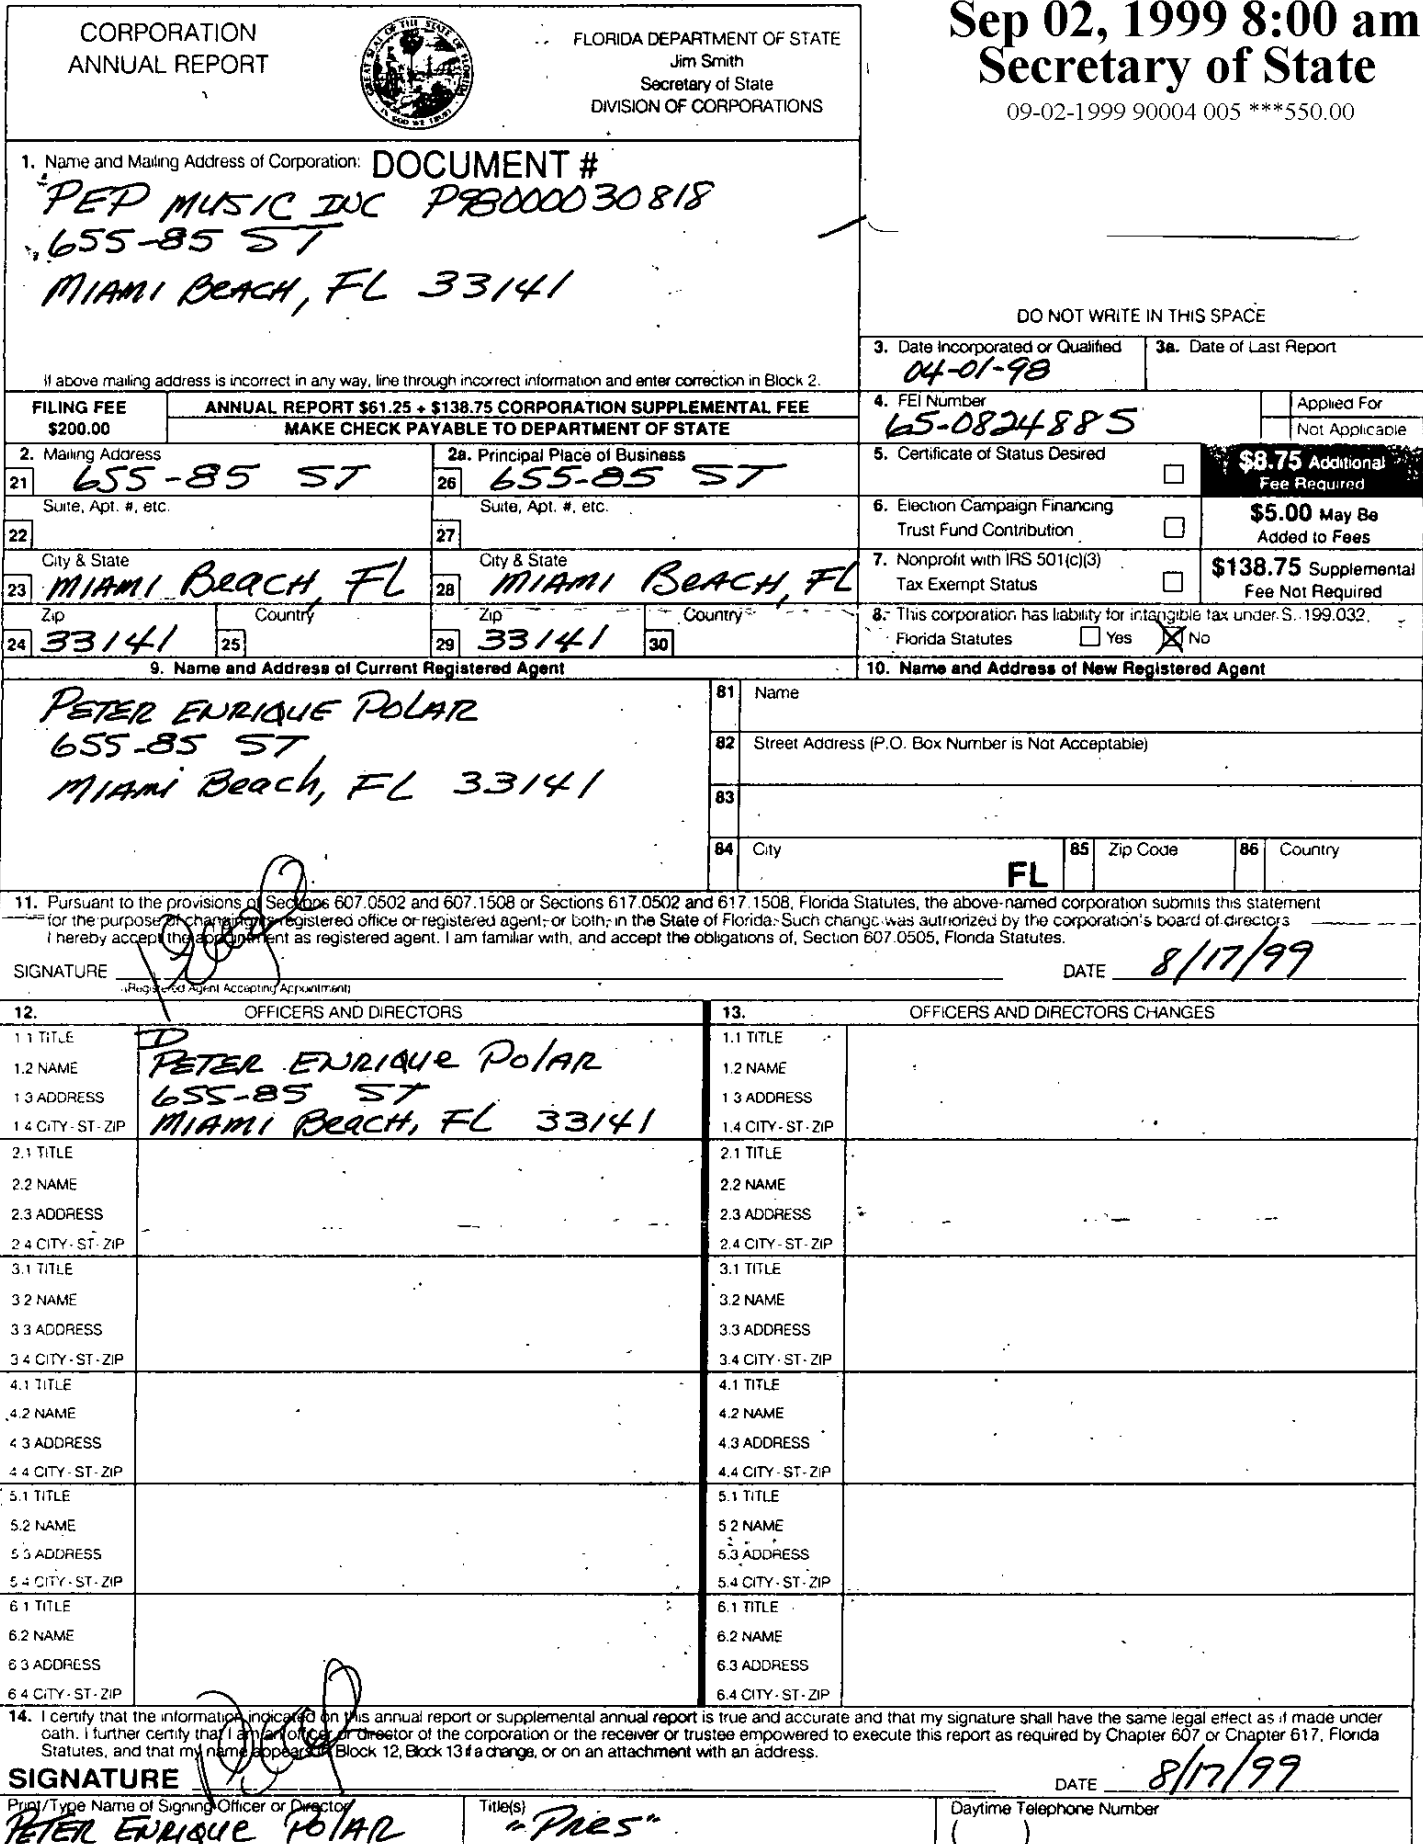 CORPORATION
ANNUAL REPORT
FLORIDA DEPARTMENT OF STATE
Jim Smith
Secretary of State
DIVISION OF CORPORATIONS
Sep 02, 1999 8:00 am
Secretary of State
09-02-1999 90004 005 ***550.00
1. Name and Mailing Address of Corporation: DOCUMENT #
PEP MUSIC INC P98000030818
655-85 ST
MIAMI BEACH, FL 33141
If above mailing address is incorrect in any way, line through incorrect information and enter correction in Block 2.
DO NOT WRITE IN THIS SPACE
3. Date Incorporated or Qualified
04-01-98
3a. Date of Last Report
FILING FEE
$200.00
ANNUAL REPORT $61.25 + $138.75 CORPORATION SUPPLEMENTAL FEE
MAKE CHECK PAYABLE TO DEPARTMENT OF STATE
4. FEI Number
65-0824885
Applied For
Not Applicable
2. Mailing Address
21 655-85 ST
2a. Principal Place of Business
26 655-85 ST
5. Certificate of Status Desired
$8.75 Additional
Fee Required
Suite, Apt. #, etc.
22
Suite, Apt. #, etc.
27
6. Election Campaign Financing
Trust Fund Contribution
$5.00 May Be
Added to Fees
City & State
23 MIAMI BeACH, FL
City & State
28 MIAMI BEACH, FL
7. Nonprofit with IRS 501(c)(3)
Tax Exempt Status
$138.75 Supplemental
Fee Not Required
Zip
24 33141
Country
25
Zip
29 33141
Country
30
8. This corporation has liability for intangible tax under S. 199.032,
Florida Statutes Yes No
9. Name and Address of Current Registered Agent
PETER ENRIQUE POLAR
655-85 ST
MIAMI Beach, FL 33141
10. Name and Address of New Registered Agent
81 Name
82 Street Address (P.O. Box Number is Not Acceptable)
83
84 City
FL
85 Zip Code
86 Country
11. Pursuant to the provisions of Sections 607.0502 and 607.1508 or Sections 617.0502 and 617.1508, Florida Statutes, the above-named corporation submits this statement
for the purpose of changing its registered office or registered agent, or both, in the State of Florida. Such change was authorized by the corporation's board of directors
I hereby accept the appointment as registered agent. I am familiar with, and accept the obligations of, Section 607.0505, Florida Statutes.
SIGNATURE
(Registered Agent Accepting Appointment)
DATE 8/17/99
12. OFFICERS AND DIRECTORS
1.1 TITLE D
1.2 NAME PETER ENRIQUE POLAR
1.3 ADDRESS 655-85 ST
1.4 CITY-ST-ZIP MIAMI BEACH, FL 33141
2.1 TITLE
2.2 NAME
2.3 ADDRESS
2.4 CITY-ST-ZIP
3.1 TITLE
3.2 NAME
3.3 ADDRESS
3.4 CITY-ST-ZIP
4.1 TITLE
4.2 NAME
4.3 ADDRESS
4.4 CITY-ST-ZIP
5.1 TITLE
5.2 NAME
5.3 ADDRESS
5.4 CITY-ST-ZIP
6.1 TITLE
6.2 NAME
6.3 ADDRESS
6.4 CITY-ST-ZIP
13. OFFICERS AND DIRECTORS CHANGES
1.1 TITLE
1.2 NAME
1.3 ADDRESS
1.4 CITY-ST-ZIP
2.1 TITLE
2.2 NAME
2.3 ADDRESS
2.4 CITY-ST-ZIP
3.1 TITLE
3.2 NAME
3.3 ADDRESS
3.4 CITY-ST-ZIP
4.1 TITLE
4.2 NAME
4.3 ADDRESS
4.4 CITY-ST-ZIP
5.1 TITLE
5.2 NAME
5.3 ADDRESS
5.4 CITY-ST-ZIP
6.1 TITLE
6.2 NAME
6.3 ADDRESS
6.4 CITY-ST-ZIP
14. I certify that the information indicated on this annual report or supplemental annual report is true and accurate and that my signature shall have the same legal effect as if made under
oath. I further certify that I am an officer or director of the corporation or the receiver or trustee empowered to execute this report as required by Chapter 607 or Chapter 617, Florida
Statutes, and that my name appears in Block 12, Block 13 if a change, or on an attachment with an address.
SIGNATURE
DATE 8/17/99
Print/Type Name of Signing Officer or Director
PETER ENRIQUE POLAR
Title(s)
"PRES"
Daytime Telephone Number
( )